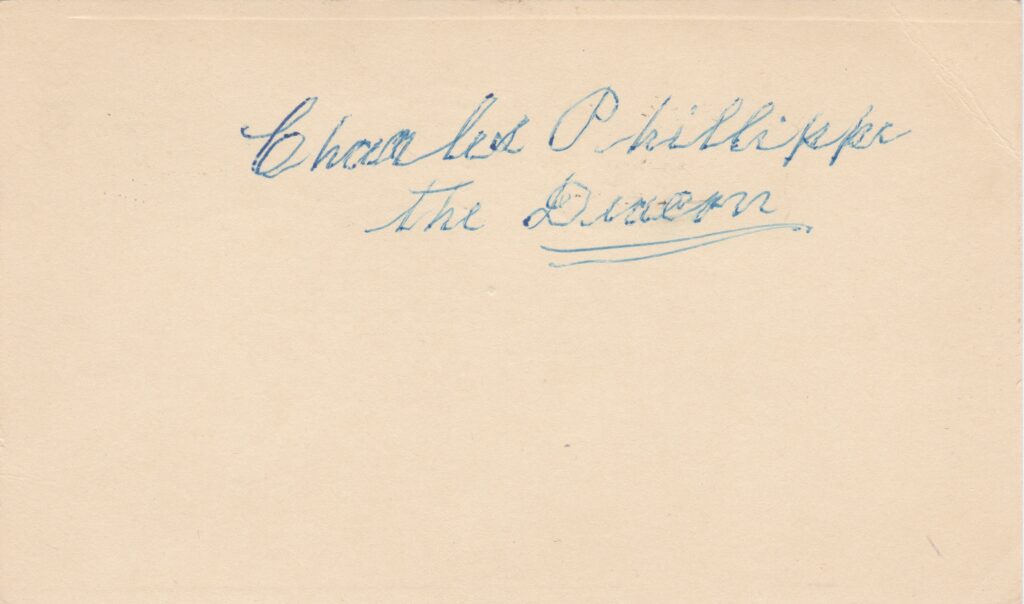 Charles Phillippe
the Deacon